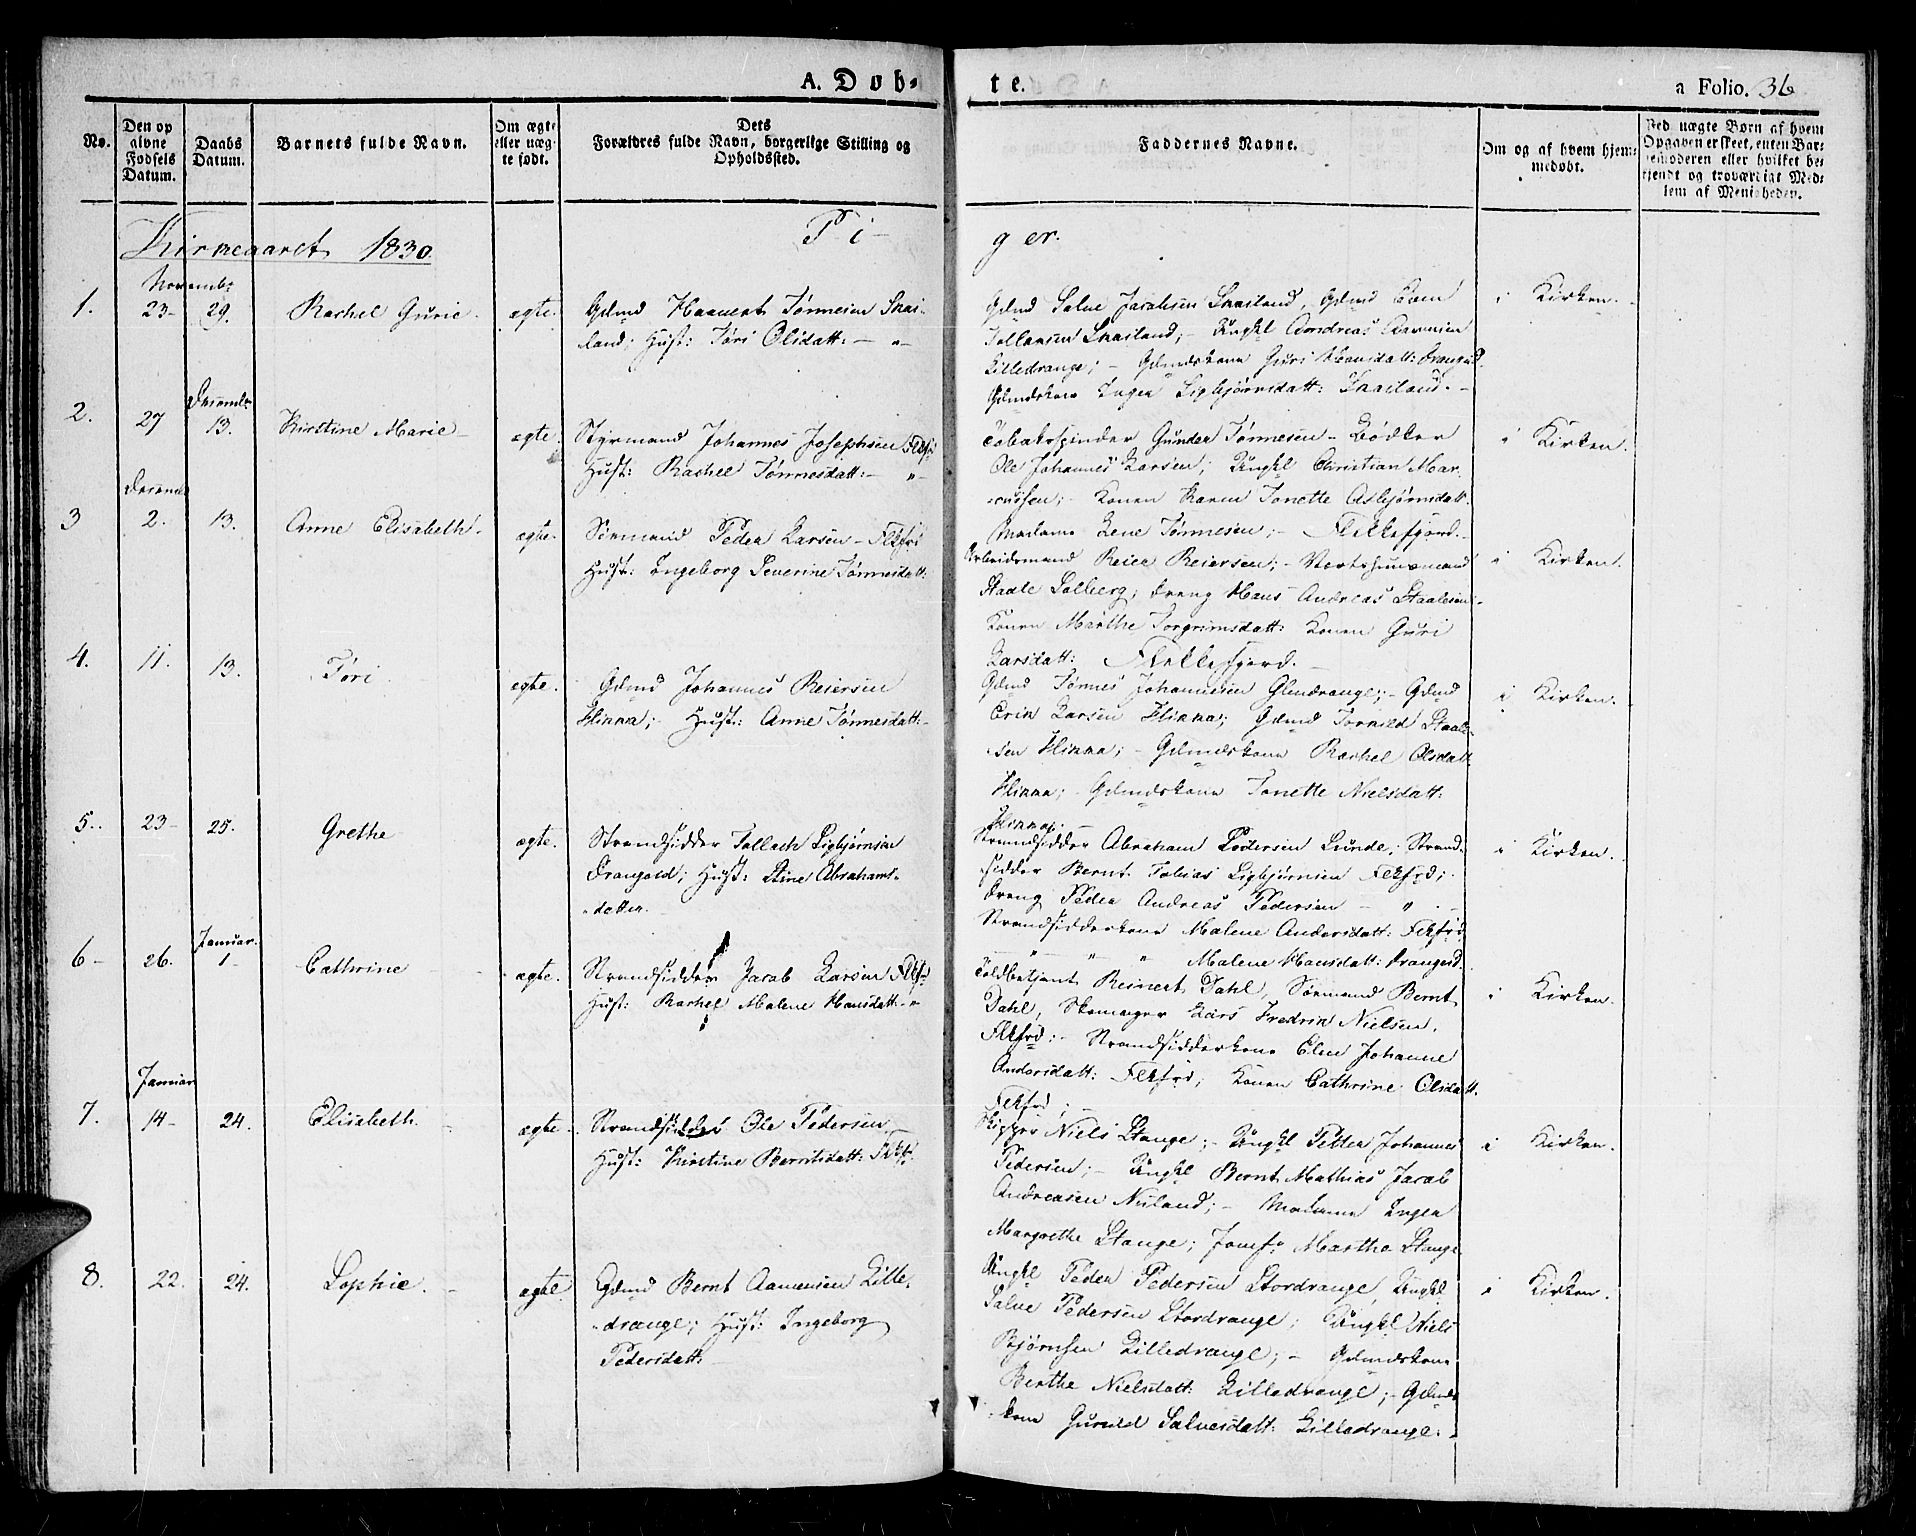 A. Døb-
te.
a Folio. 36
No.
Den op
givne
Fødsels
Datum.
Daabs
Datum.
Barnets fulde Navn.
Om ægte
eller uæg-
te født.
Dets
Forældres fulde Navn, borgerlige Stilling og
Opholdssted.
Faddernes Navne.
Om og af hvem hjem-
medøbt.
Ved uægte Børn af hvem
Opgaven er skeet, enten Bar-
nemoderen eller hvilket be-
kjendt og troværdigt Med-
lem af Menigheden.
Kirkeaaret 1830.
Pi-
ger.
Novembr
1. 23- 29. Rachel Gurie. ægte.
Gdmd Haavert Tønnesen Skai-
land; Hust: Tøri Olsdatt: - "-
Gdmd Salve Jacobsen Skailand, Gdmd
Tollaksen Skailand; - Ungkl Andreas Aamensen
Lilledrange; - Gdmdskone Guri Hansdatt: Drangeid.
Gdmdskone Inger Sigbjørnsdatt: Skailand. -
i Kirken.
Decembr
2. 27 13. Kirstine Marie - ægte.
Styrmand Johannes Josephsen Flkfd
Hust: Rachel Tønnesdatt: - "-
Tobakspinder Gunder Tønnesen - Bødker
Ole Johannes Larsen; Ungkl Christian Mar-
cussen; - Konen Karen Tonette Asbjørnsdatt.
Madame Lene Tønnesen; - Flekkefjord. -
i Kirken.
Decembr
3 2. 13. Anne Elisabeth. ægte.
Sømand Peder Larsen - Flkfd
Hust: Ingeborg Severine Tønnesdatt:
Arbeidsmand Reier Reiersen; - Vertshuusmand
Staale Solberg; Dreng Hans Andreas Staalesen -
Konen Marthe Torgrimsdatt: Konen Guri
Larsdatt: Flekkefjord. -
i Kirken.
4. 11. 13. Tøri ægte.
Gdmd Johannes Reiersen
Hlinna; - Hust: Anne Tønnesdatt: -
Gdmd Tønnes Johannesen Glendrange; - Gdmd
Erik Larsen Hlinna; Gdmd Torkild Staale-
sen Hlinna; - Gdmdskone Rachel Olsdatt:
Hlinna; - Gdmdskone Tonette Nielsdatt:
Hlinna; -
i Kirken.
5. 23- 25. Grethe ægte.
Strandsidder Tollach Sigbjørnsen
Drangeid; Hust: Stine Abrahams-
datter.
Strandsidder Abraham Pedersen Lunde; Strand-
sidder Bernt Tobias Sigbjørnsen Flkfrd;
Dreng Peder Andreas Pedersen - " -
Strandsidderkone Malene Andersdatt: Flkfrd
- " " " Malene Hansdatt: Drangeid.
i Kirken.
Januar.
6- 26. 1- Cathrine ægte.
Strandsidder Jacob Larsen Flkfd
Hust: Rachel Malene Hansdatt: -"
Toldbetjent Reinert Dahl, Sømand Bernt
Dahl, Skomager Lars Fredrik Nielsen,
Flkfrd: - Strandsidderkone Elen Johanne
Andersdatt: Flkfrd; Konen Cathrine Olsdatt.
Flkfrd;
i Kirken.
Januar
7. 14- 24. Elisabeth. ægte.
Strandsidder Ole Pedersen
Hust: Kirstine Berntsdatt: Flkfd
Skipper Niels Stange; - Ungkl Petter Johannes
Pedersen; - Ungkl Bernt Mathias Jacob
Andreasen Nuland; - Madame Inger
Margrethe Stange; Jomfr Marthe Stange
i Kirken.
8. 22. 24. Sophie. ægte.
Gdmd Bernt Aamensen Lille-
drange; Hust: Ingeborg
Pedersdatt:
Ungkl Peder Pedersen Stordrange, Ungkl
Salve Pedersen Stordrange; Ungkl Niels
Bjørnsen Lilledrange; - Gdmdskone
Berthe Nielsdatt: Lilledrange; - Gdmds-
kone Gunild Salvesdatt: Lilledrange. -
i Kirken.